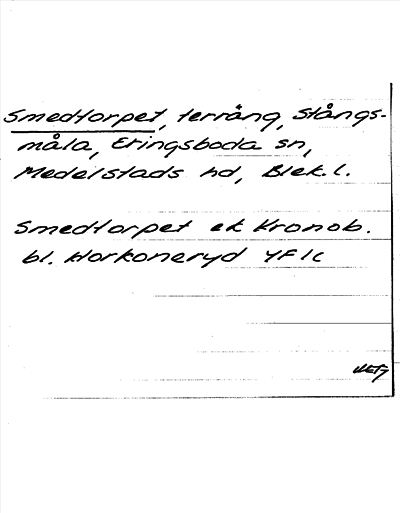 Smedtorpet, terräng, Stångs-
måla, Eringsboda sn,
Medelstads hd, Blek. l.
Smedtorpet ek Kronob.
bl. Horkoneryd 4F 1c